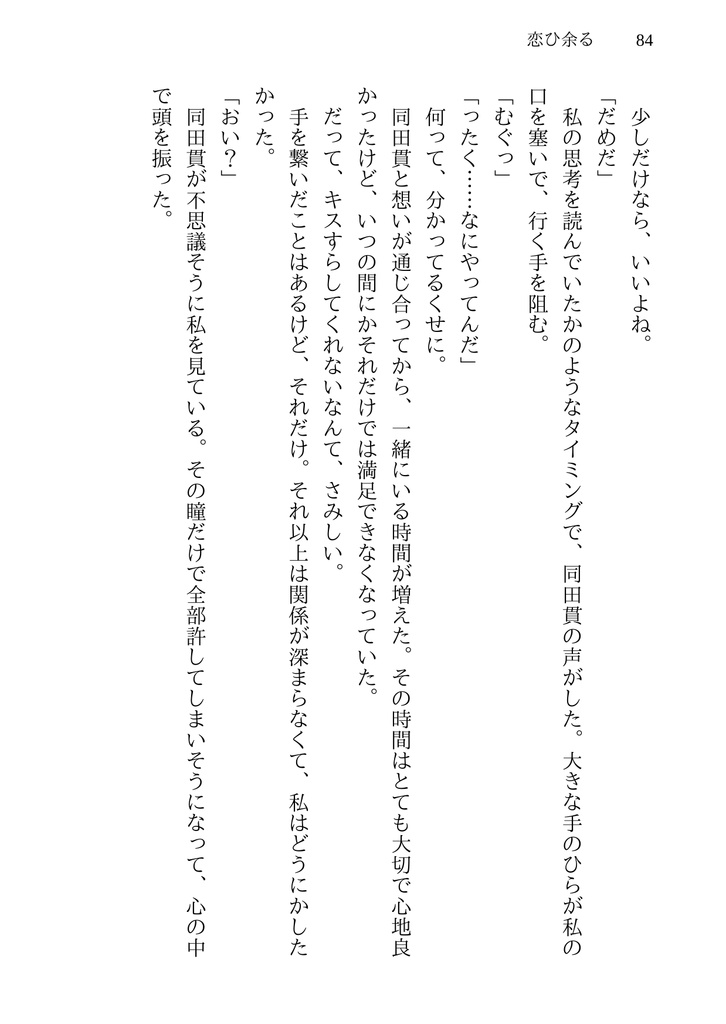 恋ひ余る 84
少しだけなら、いいよね。
「だめだ」
私の思考を読んでいたかのようなタイミングで、同田貫の声がした。大きな手のひらが私の
口を塞いで、行く手を阻む。
「むぐっ」
「ったく……なにやってんだ」
何って、分かってるくせに。
同田貫と想いが通じ合ってから、一緒にいる時間が増えた。その時間はとても大切で心地良
かったけど、いつの間にかそれだけでは満足できなくなっていた。
だって、キスすらしてくれないなんて、さみしい。
手を繋いだことはあるけど、それだけ。それ以上は関係が深まらなくて、私はどうにかした
かった。
「おい？」
同田貫が不思議そうに私を見ている。その瞳だけで全部許してしまいそうになって、心の中
で頭を振った。